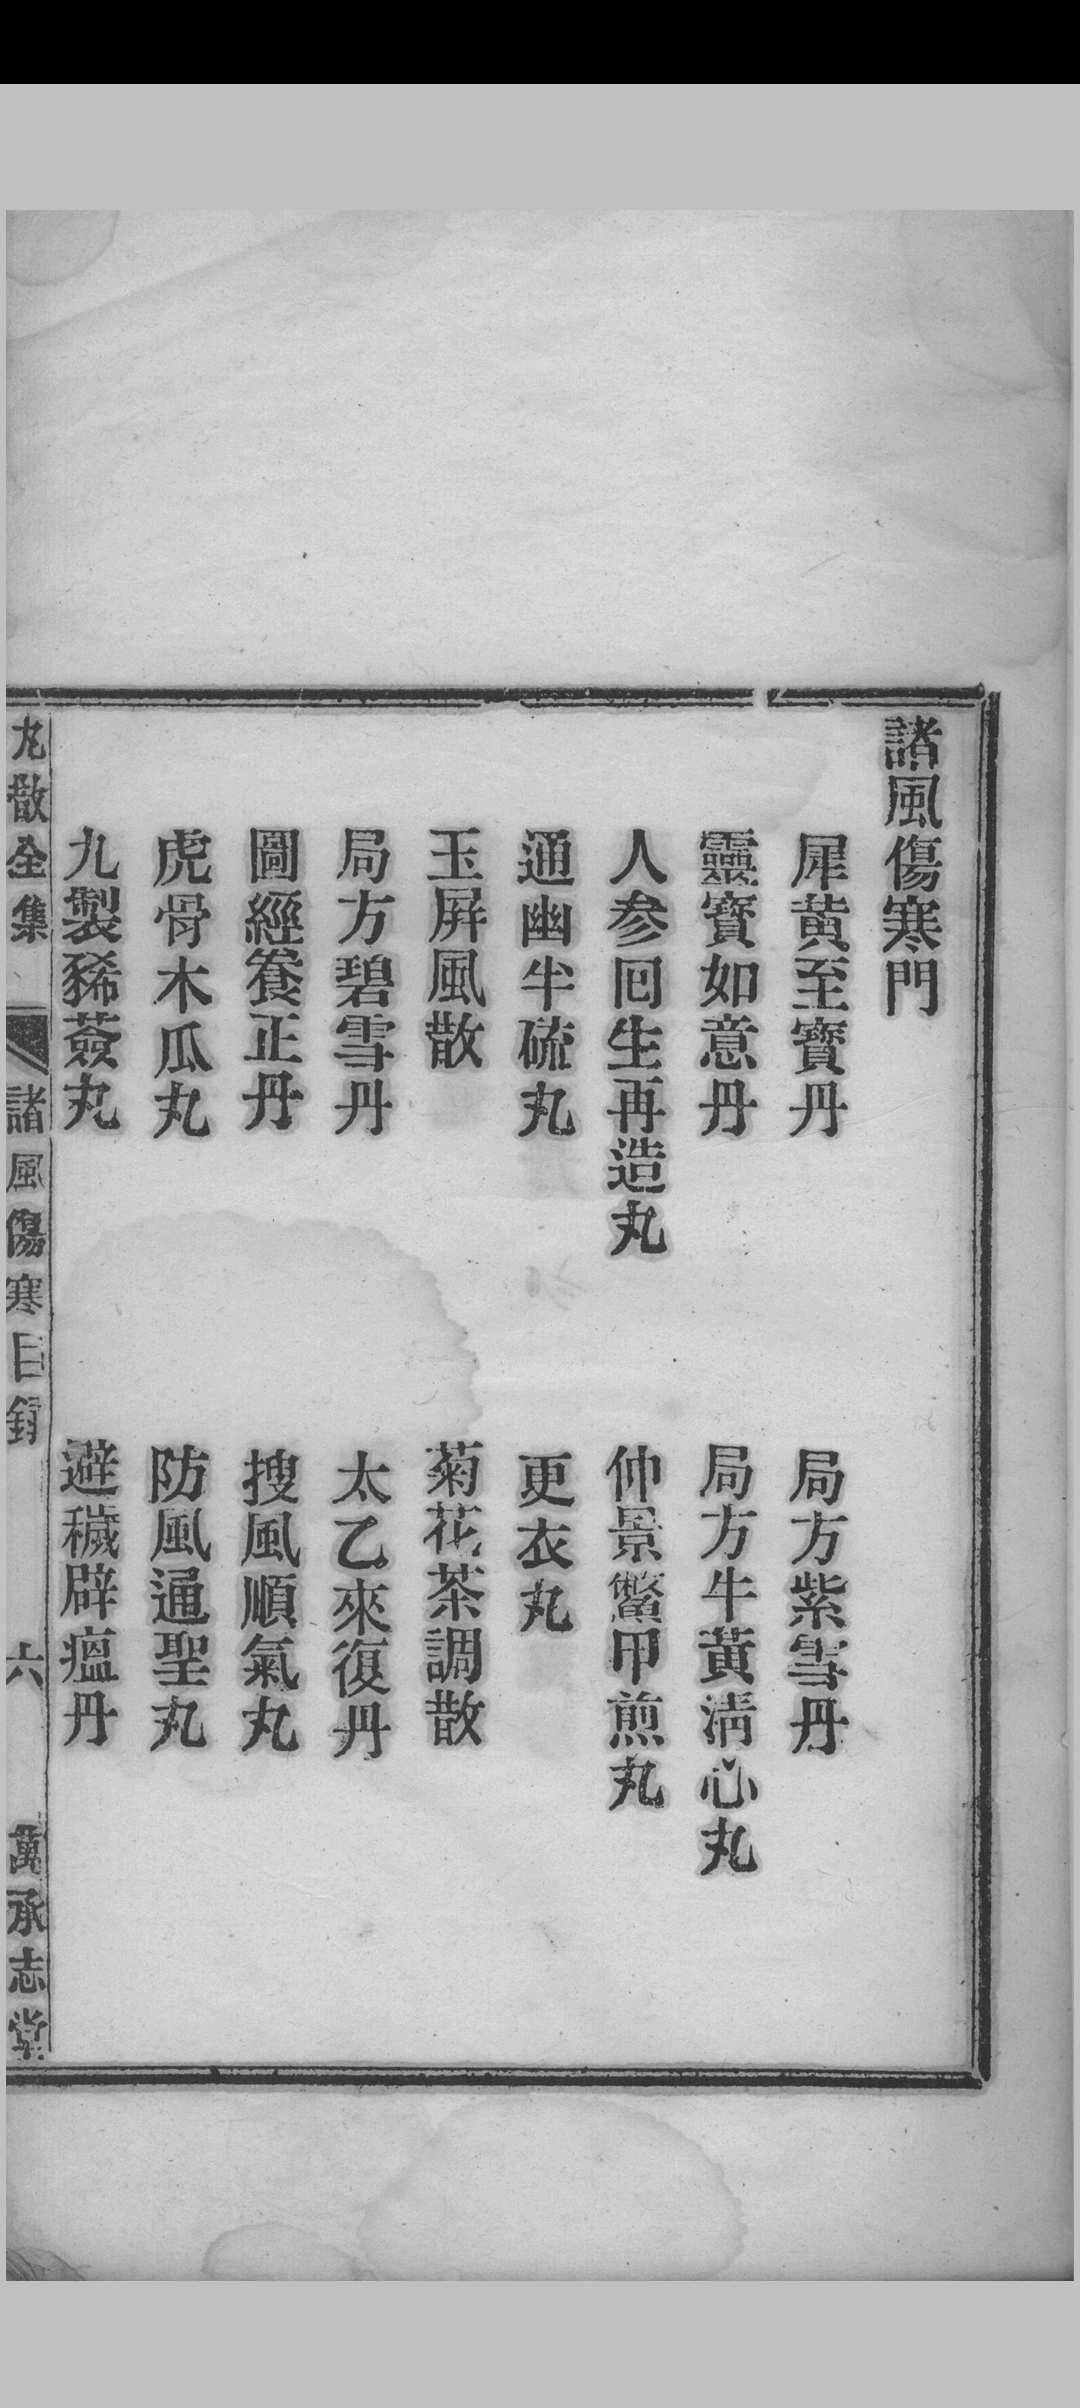 諸風傷寒門
犀黄至寶丹
局方紫雪丹
靈寶如意丹
局方牛黃淸心丸
人参囘生再造丸
仲景鱉甲煎丸
通幽半硫丸
更衣丸
玉屏風散
菊花茶調散
局方碧雪丹
太乙來復丹
圖經養正丹
搜風順氣丸
虎骨木瓜丸
防風通聖丸
九製豨薟丸
避穢辟瘟丹
丸散全集
諸風傷寒目錄
六
萬承志堂